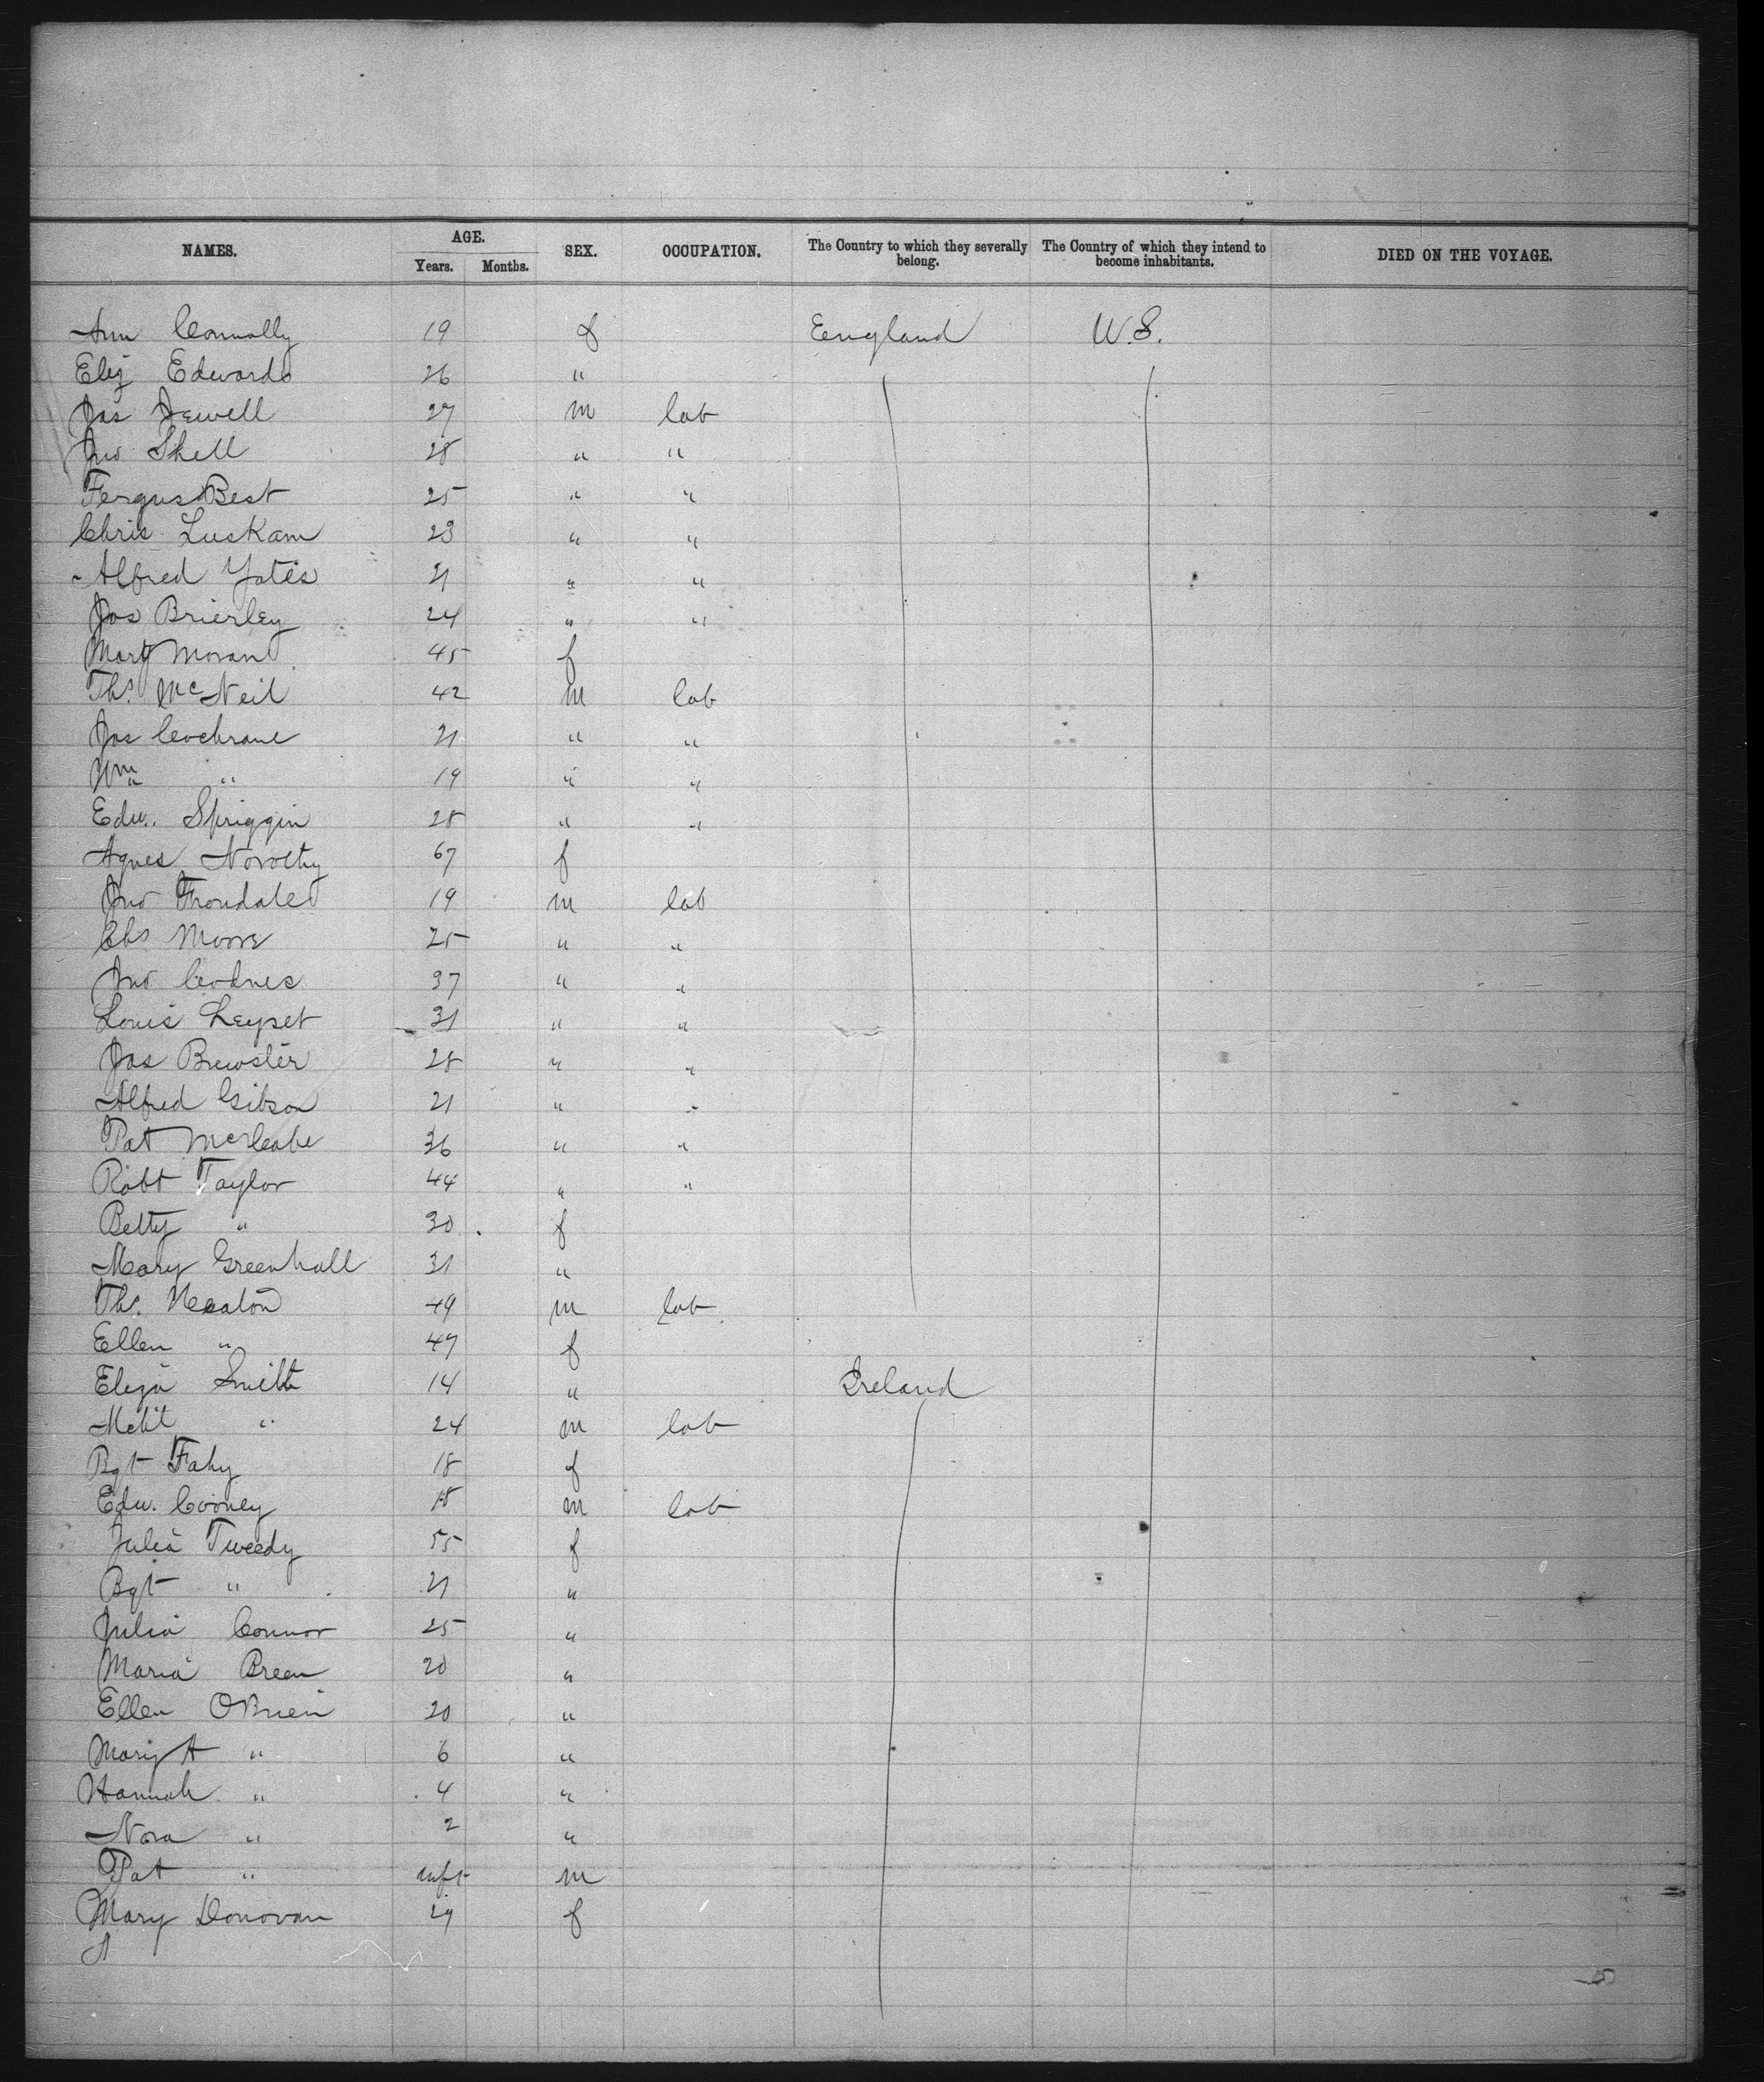 NAMES. AGE. SEX. OCCUPATION. The Country to which they severally belong. The Country of which they intend to become inhabitants. DIED ON THE VOYAGE.
Years. Months.
Ann Connolly 19 f England U.S.
Eliz Edwards 26 "
Jas Jewell 27 m lab
Jno Shell 28 " "
Fergus Best 25 " "
Chris Luskam 23 " "
Alfred Yates 21 " "
Jos Brierley 24 " "
Mary Moran 45 f
Ths. McNeil 42 m lab
Jas Cochrane 21 " "
Wm " 19 " "
Edw. Spriggin 28 " "
Agnes 67 f
Jno Frondale 19 m lab
Chs Moore 25 " "
Jno 37 " "
Louis Leyset 31 " "
Jas Brewster 28 " "
Alfred Gibson 21 " "
Pat McCabe 36 " "
Robt Taylor 44 " "
Betty " 30 f
Mary Greenhall 31 "
Ths. 49 m lab
Ellen " 47 f
Eliza Smith 14 " Ireland
" 24 m lab
Bgt Fahy 18 f
Edw. Cooney 18 m lab
Julia Tweedy 55 f
Bgt " 21 "
Julia Connor 25 "
Maria Breen 20 "
Ellen OBrien 30 "
Mary A " 6 "
Hannah " 4 "
Nora " 2 "
Pat " inft m
Mary Donovan 29 f